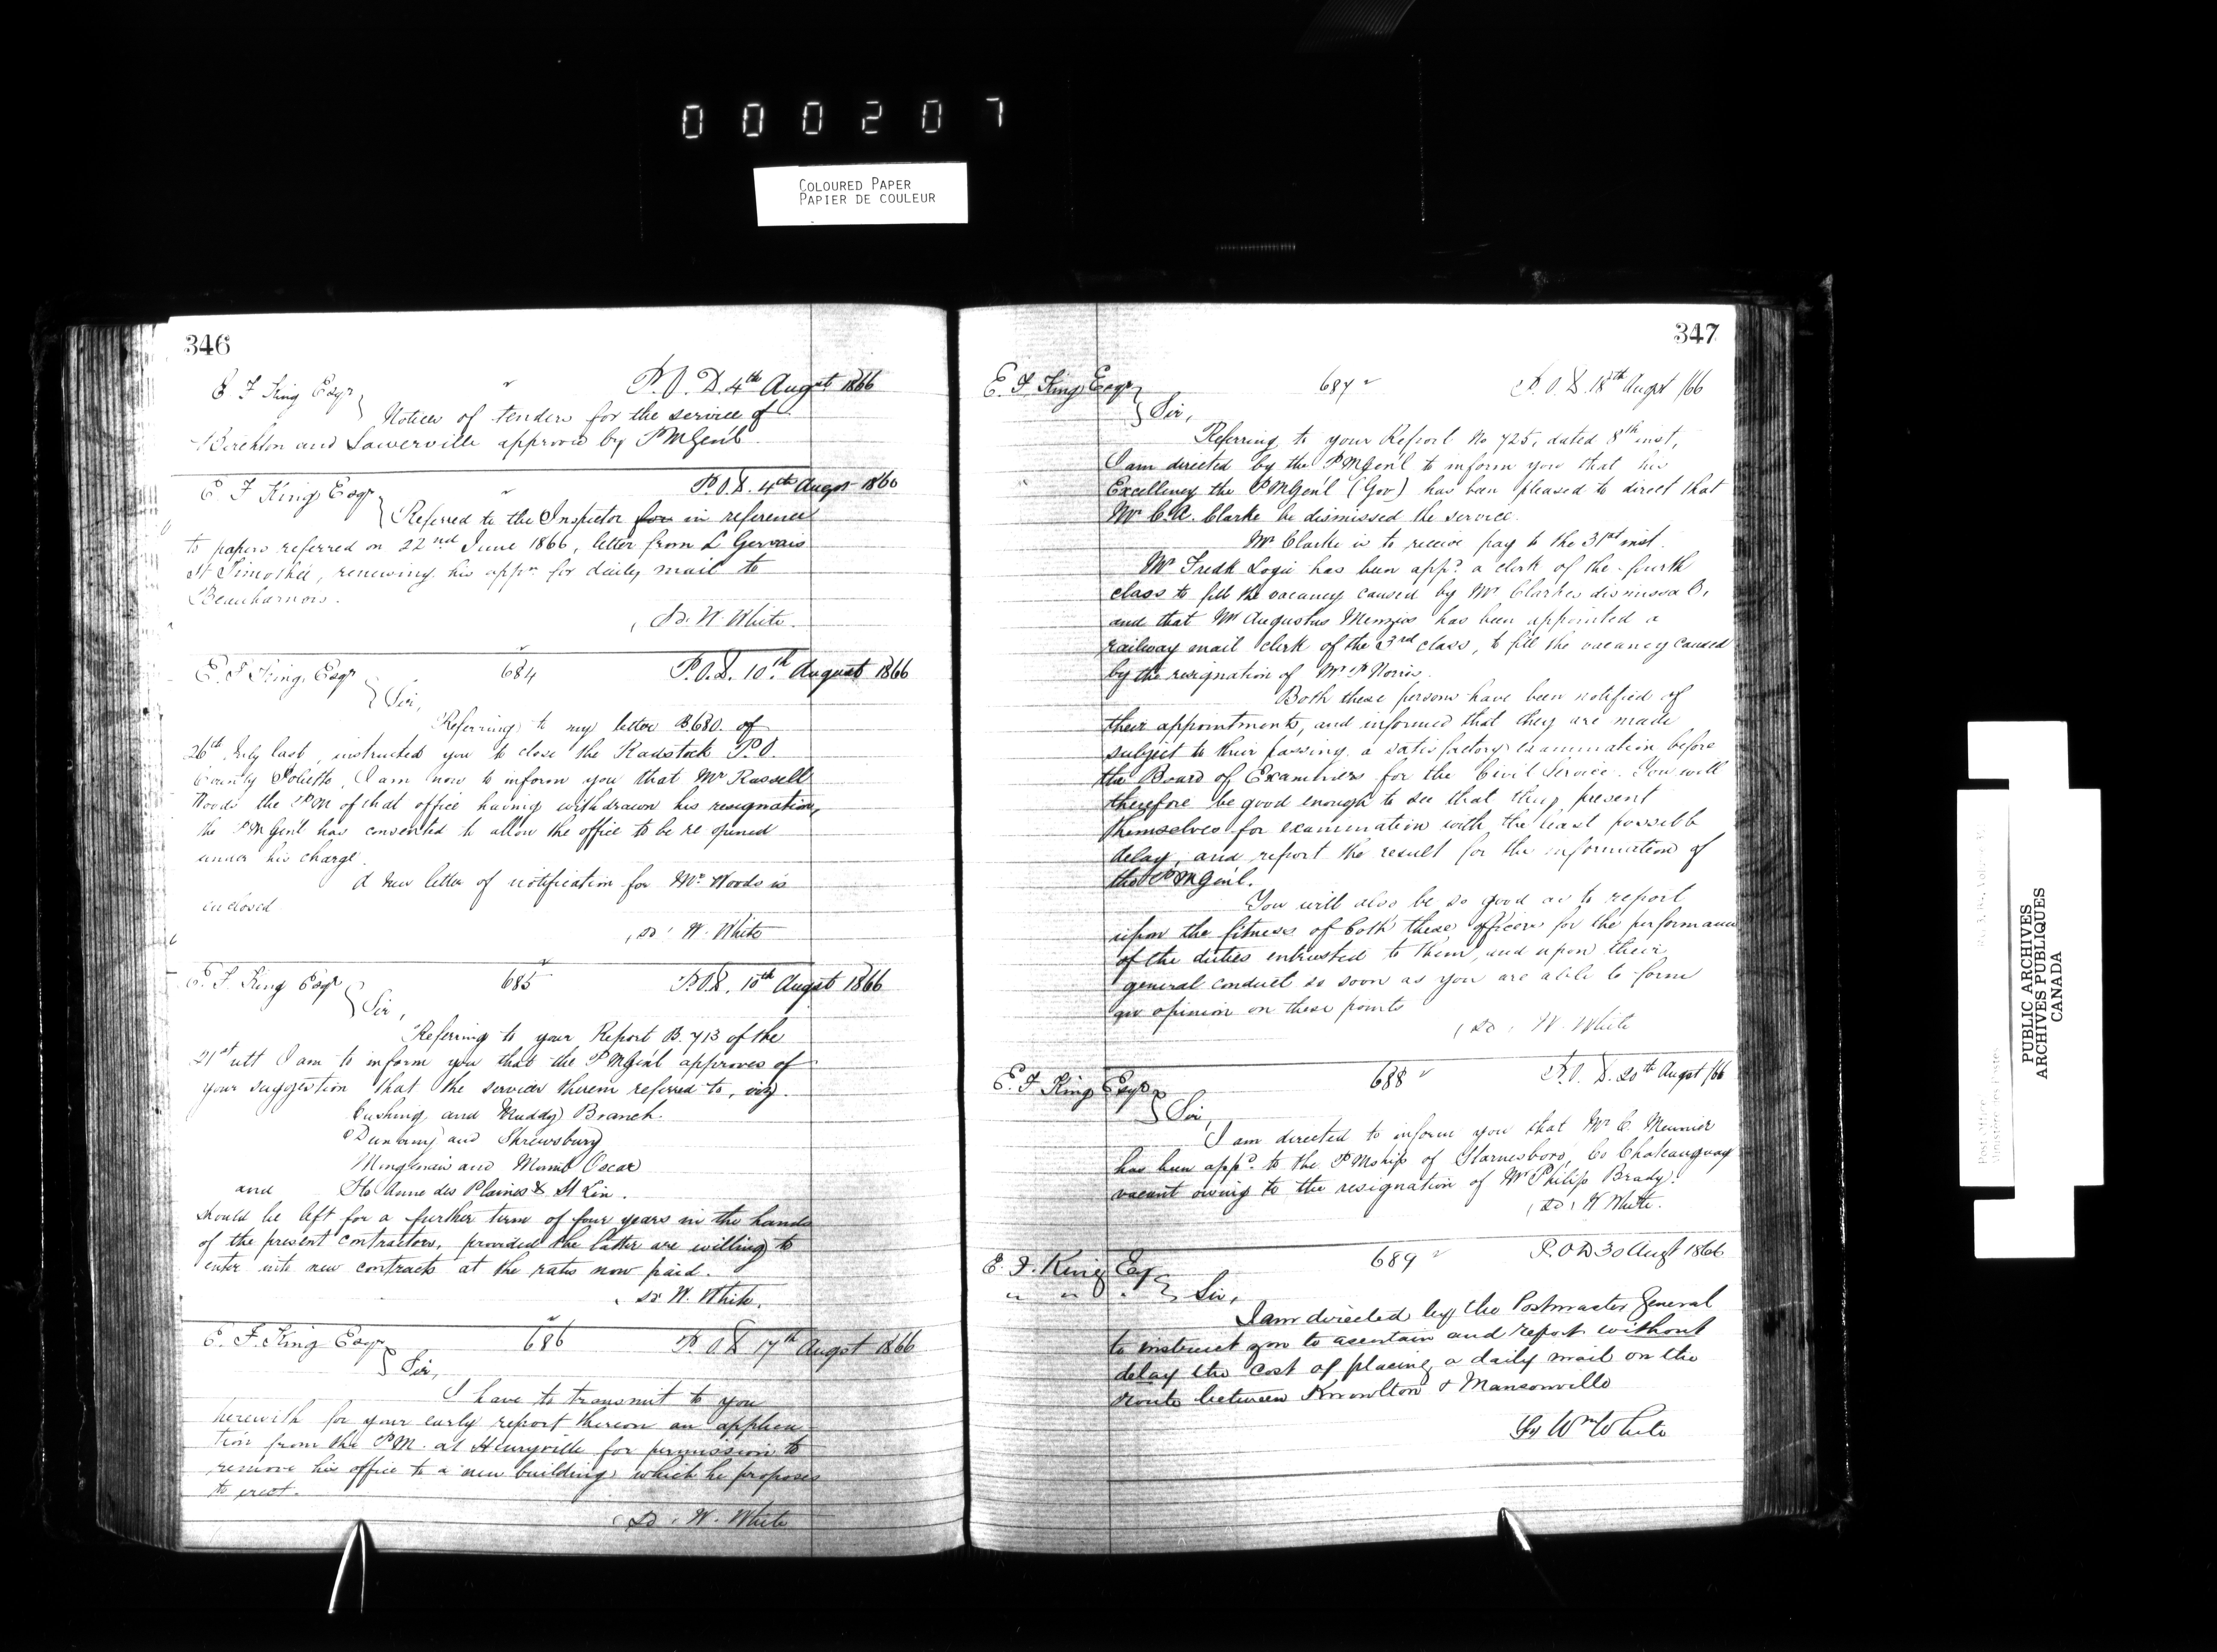 0 0 0 2 0 7
COLOURED PAPER
PAPIER DE COULEUR
346
E F King Esqr P.O.D. 4th Augst 1866
Notices of tenders for the service of
and approved by PMGen'l
E. F King Esqr P.O.D. 4th Augst 1866
Referred to the Inspector for in reference
to papers referred on 22nd June 1866, letter from L Gervais
St Timothée, renewing his appn for daily mail to
Beauharnois.
Sd. W. White.
E. F King Esqr 684 P.O.D. 10th August 1866
Sir,
Referring to my letter B.680. of
26th July last, instructed you to close the Radstock P.O.
County Joliette, I am now to inform you that Mr Russell
Woods the PM of that office having withdrawn his resignation,
the PMGen'l has consented to allow the office to be re opened
under his charge.
A new letter of notification for Mr. Woods is
enclosed
Sd. W. White
E. F. King Esqr 685 P.O.D. 10th Augst 1866
Sir,
Referring to your Report B. 713 of the
21st ult I am to inform you that the PMGen'l approves of
your suggestion that the services therein referred to, viz.
Cushing and Muddy Branch.
Dunany and Shrewsbury
and Mount Oscar
and Ste Anne des Plaines & St Lin.
should be left for a further term of four years in the hands
of the present contractors, provided the latter are willing to
enter into new contracts at the rates now paid.
Sd. W. White.
E. F. King Esqr 686 P.O.D 17th Augst 1866
Sir,
I have to transmit to you
herewith for your early report thereon an applica
tion from the P.M. at Henryville for permission to
remove his office to a new building which he proposes
to erect.
Sd. W. White
347
E. F King Esqr 687 P.O.D. 18th Augst /66
Sir,
Referring to your Report No 725, dated 8th inst,
I am directed by the PMGen'l to inform you that his
Excellency the PMGen'l (Gov) has been pleased to direct that
Mr C. A. Clarke be dismissed the service.
Mr Clarke is to receive pay to the 31st inst.
Mr Fredk Logie has been appd. a clerk of the fourth
class to fill the vacancy caused by Mr Clarkes dismissal,
and that Mr Augustus Menzies has been appointed a
railway mail clerk of the 3rd class, to fill the vacancy caused
by the resignation of Mr Norris.
Both these persons have been notified of
their appointments, and informed that they are made
subject to their passing a satisfactory examination before
the Board of Examiners for the Civil Service. You will
therefore be good enough to see that they present
themselves for examination with the least possible
delay, and report the result for the information of
the PMGen'l.
You will also be so good as to report
upon the fitness of both these officers for the performance
of the duties entrusted to them, and upon their
general conduct so soon as you are able to form
an opinion on these points
Sd. W. White
E. F King Esqr 688 P.O.D. 20th Augst /66
Sir,
I am directed to inform you that Mr C. Meunier
has been appd. to the PMship of Starnesboro, Co Chateauguay
vacant owing to the resignation of Mr Philip Brady.
Sd. W White.
E. F. King Esq 689 P.O.D 30 Augt 1866
Sir,
I am directed by the Postmaster General
to instruct you to ascertain and report without
delay the cost of placing a daily mail on the
route between Knowlton & Mansonville
Sd Wm White
PUBLIC ARCHIVES
ARCHIVES PUBLIQUES
CANADA